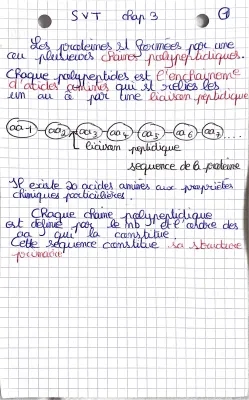 SVT chap 3 1
Les protéines st formées par une
ou plusieurs chaînes polypeptidiques.
Chaque polypeptides est l'enchaînement
d'acides aminés qui st reliés les
un au à par une liaison peptidique
aa-1 aa2 aa3 aa4 aa5 aa6 aa7 ...
liaison peptidique
séquence de la protéine
Il existe 20 acides aminés aux propriétés
chimiques particulières.
Chaque chaîne polypeptidique
est définie par le nb et l'ordre des
aa qui la constitue.
Cette séquence constitue sa structure
primaire